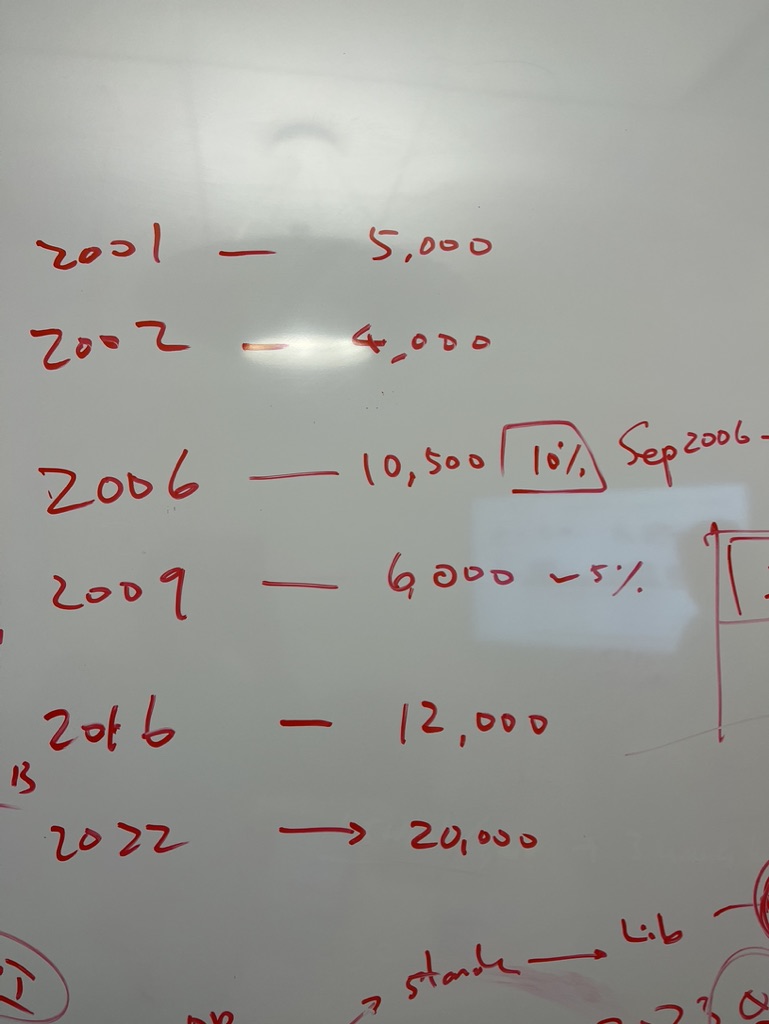 2001 — 5,000
2002 — 4,000
2006 — 10,500 10% Sep 2006 -
2009 — 6,000 ~5%
2016 — 12,000
B
2022 → 20,000
→ Lib